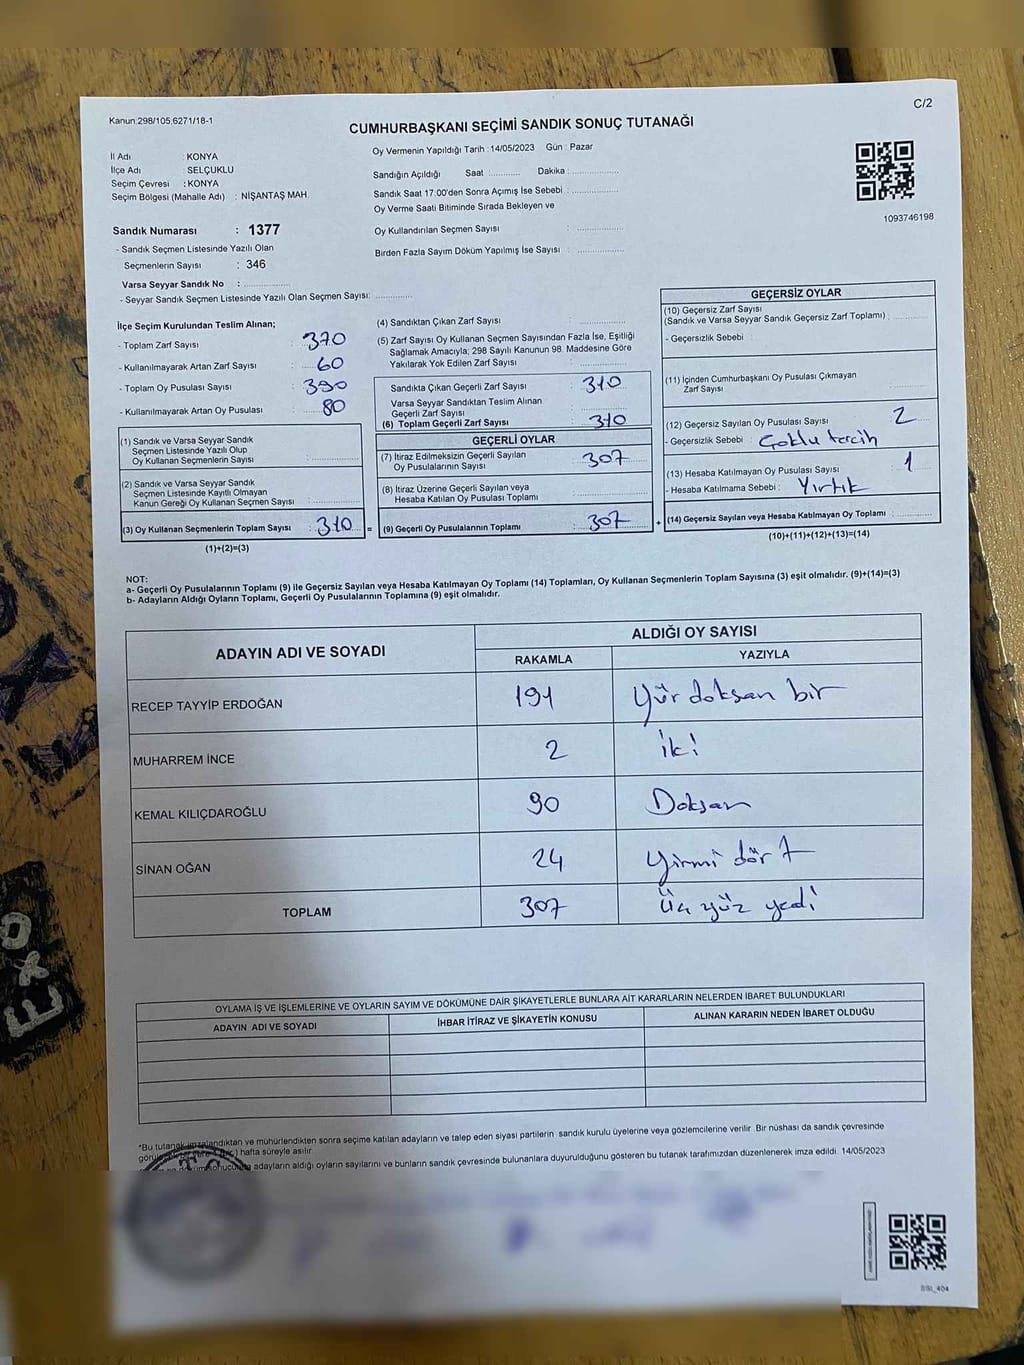 C/2
Kanun:298/105,6271/18-1
CUMHURBAŞKANI SEÇİMİ SANDIK SONUÇ TUTANAĞI
İl Adı : KONYA
İlçe Adı : SELÇUKLU
Seçim Çevresi : KONYA
Seçim Bölgesi (Mahalle Adı) : NİŞANTAŞ MAH.
Sandık Numarası : 1377
- Sandık Seçmen Listesinde Yazılı Olan
Seçmenlerin Sayısı : 346
Varsa Seyyar Sandık No : ................
- Seyyar Sandık Seçmen Listesinde Yazılı Olan Seçmen Sayısı: ............
Oy Vermenin Yapıldığı Tarih :14/05/2023 Gün : Pazar
Sandığın Açıldığı Saat ........... Dakika : ................
Sandık Saat 17:00'den Sonra Açımış İse Sebebi : ................
Oy Verme Saati Bitiminde Sırada Bekleyen ve
Oy Kullandırılan Seçmen Sayısı : ................
Birden Fazla Sayım Döküm Yapılmış İse Sayısı : ................
1093746198
İlçe Seçim Kurulundan Teslim Alınan;
- Toplam Zarf Sayısı : 370
- Kullanılmayarak Artan Zarf Sayısı : 60
- Toplam Oy Pusulası Sayısı : 390
- Kullanılmayarak Artan Oy Pusulası : 80
(1) Sandık ve Varsa Seyyar Sandık
Seçmen Listesinde Yazılı Olup
Oy Kullanan Seçmenlerin Sayısı : ................
(2) Sandık ve Varsa Seyyar Sandık
Seçmen Listesinde Kayıtlı Olmayan
Kanun Gereği Oy Kullanan Seçmen Sayısı : ................
(3) Oy Kullanan Seçmenlerin Toplam Sayısı : 310 =
(1)+(2)=(3)
(4) Sandıktan Çıkan Zarf Sayısı : ................
(5) Zarf Sayısı Oy Kullanan Seçmen Sayısından Fazla İse, Eşitliği
Sağlamak Amacıyla; 298 Sayılı Kanunun 98. Maddesine Göre
Yakılarak Yok Edilen Zarf Sayısı : ................
Sandıkta Çıkan Geçerli Zarf Sayısı : 310
Varsa Seyyar Sandıktan Teslim Alınan
Geçerli Zarf Sayısı : ................
(6) Toplam Geçerli Zarf Sayısı : 310
GEÇERLİ OYLAR
(7) İtiraz Edilmeksizin Geçerli Sayılan
Oy Pusulalarının Sayısı : 307
(8) İtiraz Üzerine Geçerli Sayılan veya
Hesaba Katılan Oy Pusulası Toplamı : ................
(9) Geçerli Oy Pusulalarının Toplamı : 307 +
GEÇERSİZ OYLAR
(10) Geçersiz Zarf Sayısı
(Sandık ve Varsa Seyyar Sandık Geçersiz Zarf Toplamı) : ............
- Geçersizlik Sebebi : ............
(11) İçinden Cumhurbaşkanı Oy Pusulası Çıkmayan
Zarf Sayısı : ............
(12) Geçersiz Sayılan Oy Pusulası Sayısı : 2
- Geçersizlik Sebebi : Çoklu tercih
(13) Hesaba Katılmayan Oy Pusulası Sayısı : 1
- Hesaba Katılmama Sebebi : Yırtık
(14) Geçersiz Sayılan veya Hesaba Katılmayan Oy Toplamı : ............
(10)+(11)+(12)+(13)=(14)
NOT:
a- Geçerli Oy Pusulalarının Toplamı (9) ile Geçersiz Sayılan veya Hesaba Katılmayan Oy Toplamı (14) Toplamları, Oy Kullanan Seçmenlerin Toplam Sayısına (3) eşit olmalıdır. (9)+(14)=(3)
b- Adayların Aldığı Oyların Toplamı, Geçerli Oy Pusulalarının Toplamına (9) eşit olmalıdır.
ADAYIN ADI VE SOYADI ALDIĞI OY SAYISI
RAKAMLA YAZIYLA
RECEP TAYYİP ERDOĞAN 191 Yüz doksan bir
MUHARREM İNCE 2 iki
KEMAL KILIÇDAROĞLU 90 Doksan
SİNAN OĞAN 24 Yirmi dört
TOPLAM 307 Üç yüz yedi
OYLAMA İŞ VE İŞLEMLERİNE VE OYLARIN SAYIM VE DÖKÜMÜNE DAİR ŞİKAYETLERLE BUNLARA AİT KARARLARIN NELERDEN İBARET BULUNDUKLARI
ADAYIN ADI VE SOYADI İHBAR İTİRAZ VE ŞİKAYETİN KONUSU ALINAN KARARIN NEDEN İBARET OLDUĞU
*Bu tutanak imzalandıktan ve mühürlendikten sonra seçime katılan adayların ve talep eden siyasi partilerin sandık kurulu üyelerine veya gözlemcilerine verilir. Bir nüshası da sandık çevresinde
hafta süreyle asılır.
adayların aldığı oyların sayılarını ve bunların sandık çevresinde bulunanlara duyurulduğunu gösteren bu tutanak tarafımızdan düzenlenerek imza edildi. 14/05/2023